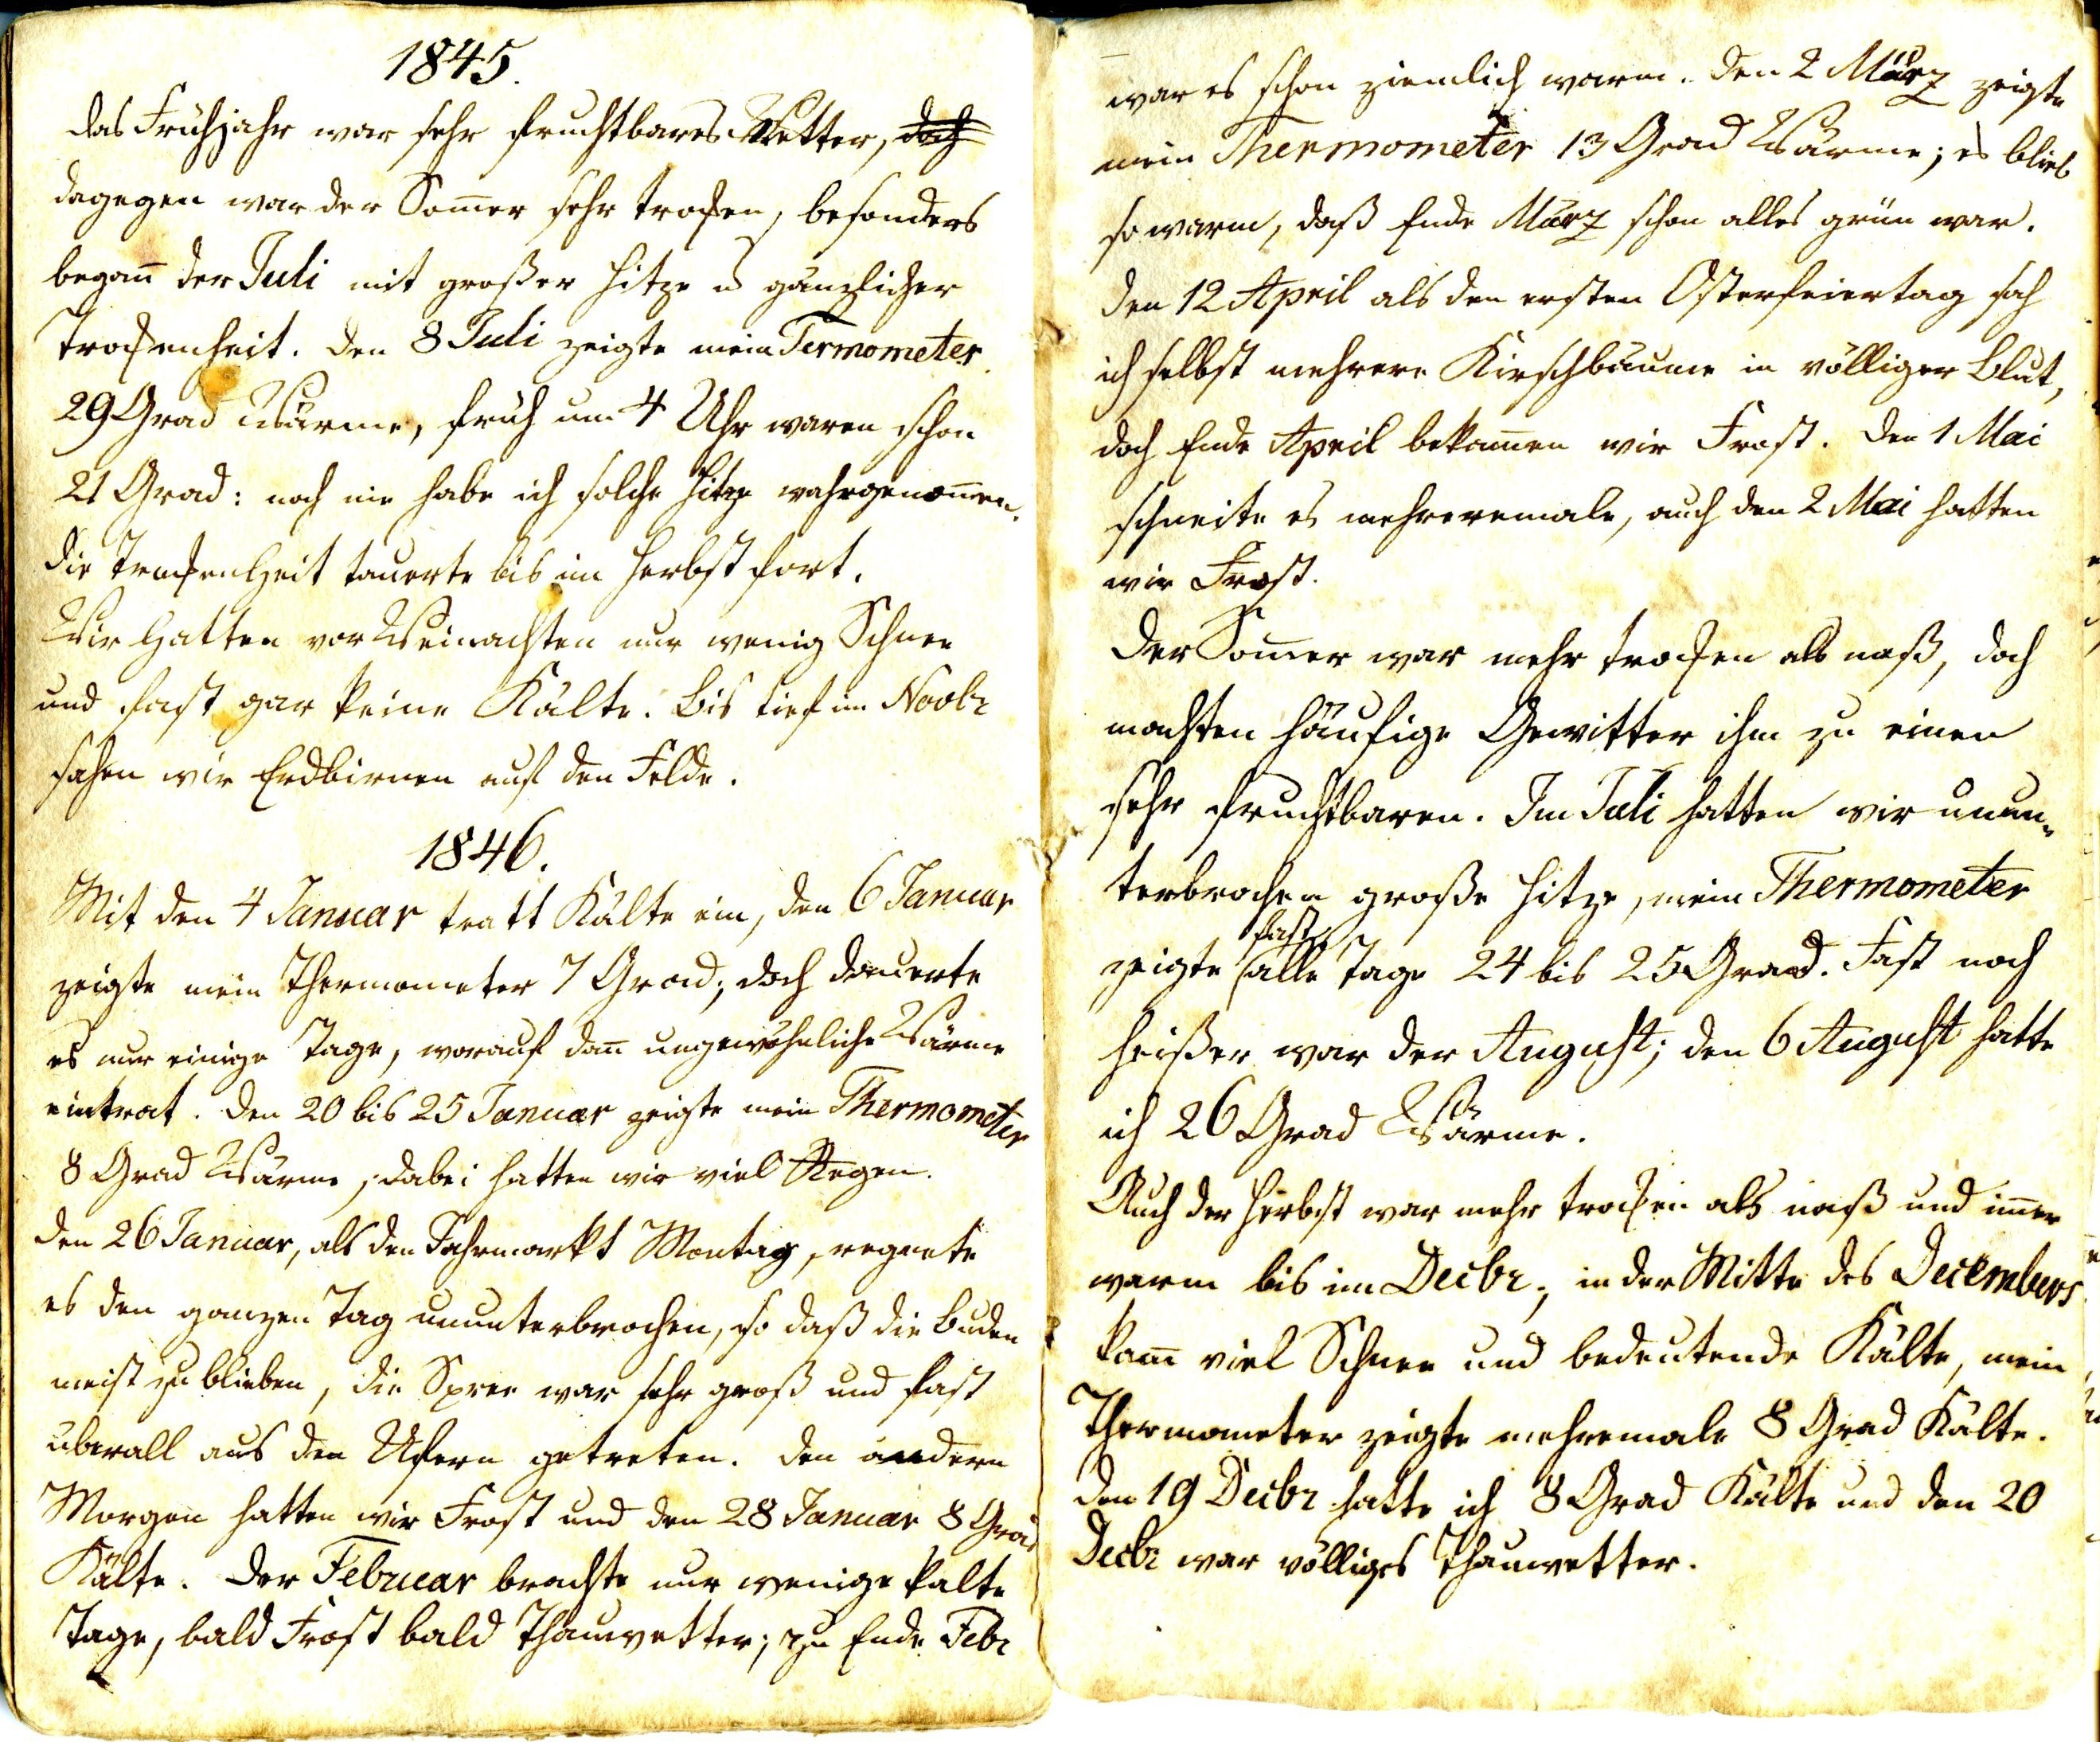 1845.
das Frühjahr war sehr fruchtbares Wetter, doch
dagegen war der Som̄er sehr trocken, besonders
began̄ der Juli mit großer Hitze u gänzlicher
Trockenheit. Den 8 Juli zeigte mein Termometer
29 Grad Wärme, früh um 4 Uhr waren schon
21 Grad: noch nie habe ich solche Hitze wahrgenom̄en.
die Trockenheit tauerte bis im Herbst fort.
Wir hatten vor Weinachten nur wenig Schnee
und fast gar keine Kälte. Bis tief im Novbr
sahen wir Erdbirnen auf den Felde.
1846.
Mit den 4 Januar tratt Kälte ein, den 6 Januar
zeigte mein Thermometer 7 Grad; doch dauerte
es nur einige Tage, worauf dan̄ ungewöhnliche Wärme
eintrat. Den 20 bis 25 Januar zeigte mein Thermometer
8 Grad Wärme, dabei hatten wir viel Regen.
den 26 Januar, als den Jahrmarkt Montag, regnete
es den ganzen Tag ununterbrochen, so daß die Buden
meist zu blieben, die Spree war sehr groß und fast
überall aus den Ufern getreten. Den andern
Morgen hatten wir Frost und den 28 Januar 8 Grad
Kälte. Der Februar brachte nur wenige kalte
Tage, bald Frost bald Thauwetter; zu Ende Febr
war es schon ziemlich warm. Den 2 März zeigte
mein Thermometer 13 Grad Wärme; es blieb
so warm, daß Ende März schon alles grün war.
Den 12 April als den ersten Osterfeiertag sah
ich selbst mehrere Kirschbäume in völliger Blut,
doch Ende April bekam̄en wir Frost. Den 1 Mai
schneite es mehreremale, auch den 2 Mai hatten
wir Frost.
Der Som̄er war mehr trocken als naß, doch
machten häufige Gewitter ihm zu einen
sehr fruchtbaren. Im Juli hatten wir unun-
terbrochen große Hitze, mein Thermometer
zeigte fast alle Tage 24 bis 25 Grad. Fast noch
heißer war der August; den 6 August hatte
ich 26 Grad Wärme.
Auch der Herbst war mehr trocken als naß und im̄er
warm bis im Decbr; in der Mitte des Decembers
kam̄ viel Schnee und bedeutende Kälte, mein
Thermometer zeigte mehremale 8 Grad Kälte.
Den 19 Decbr hatte ich 8 Grad Kälte und den 20
Decbr war völliges Thauwetter.